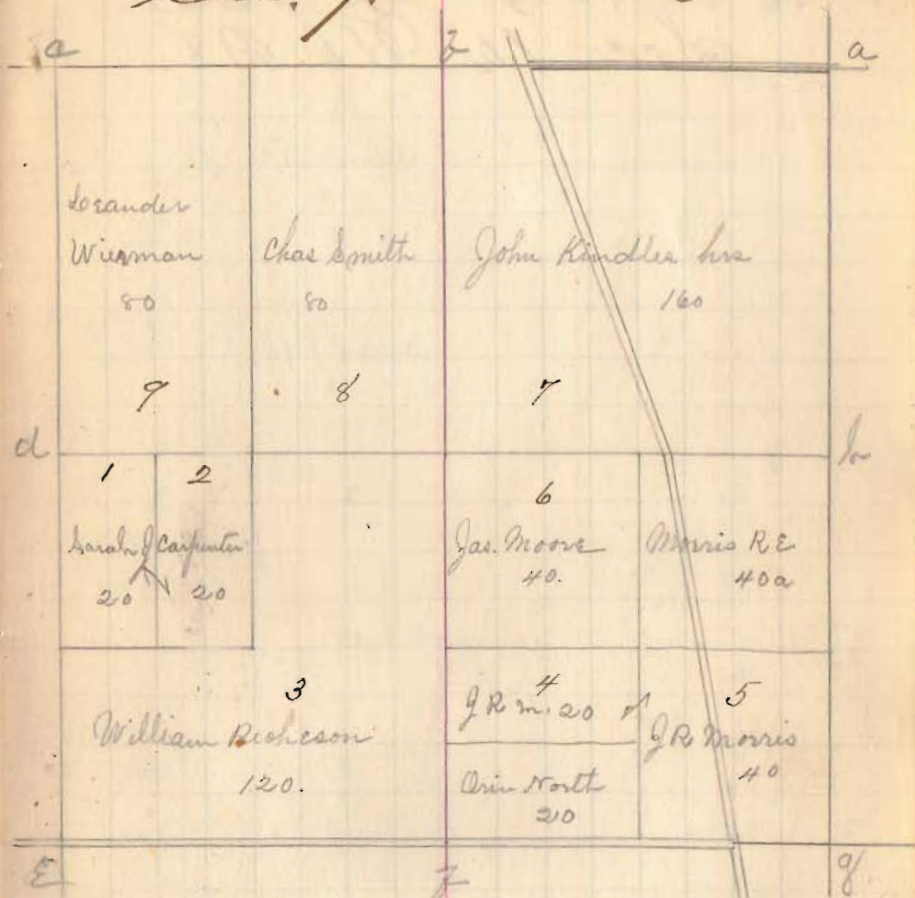 a
Leander
Wierman
80
9
Chas Smith
80
8
John Kindles hrs
160
7
d
1
2
Sarah J Carpenter
20
20
6
Jas. Moore
40.
Morris R E
40a
3
William Richeson
120.
4
J R M. 20
Orin North
20
5
J R Morris
40
E